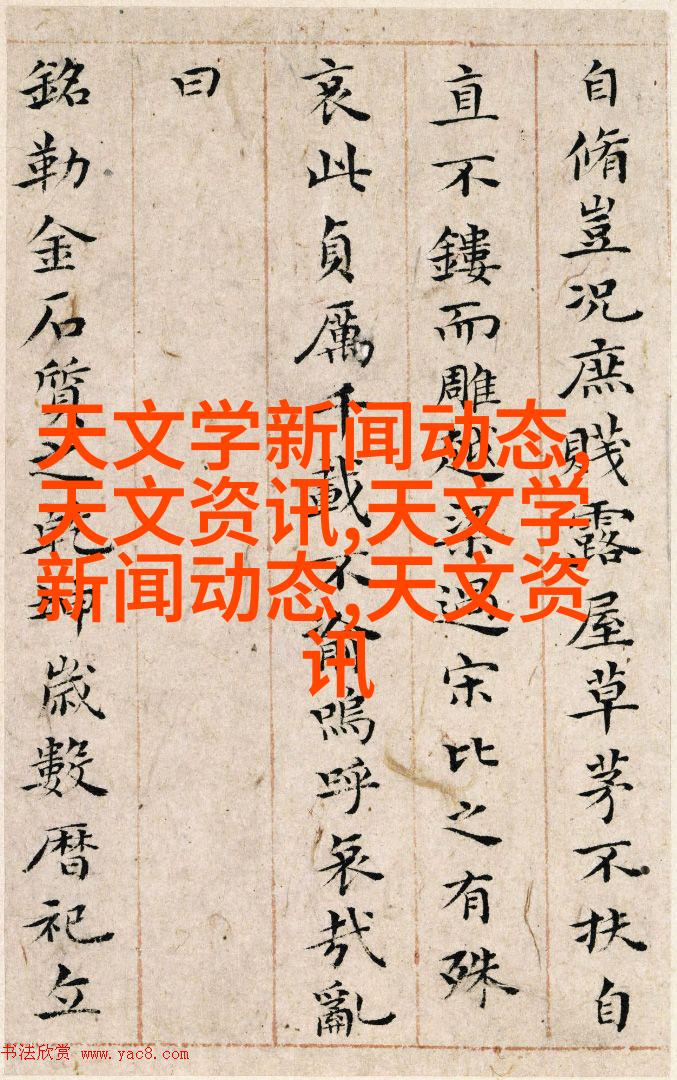 自脩豈況庶賤露屋草茅不扶自
直不鏤而雕越梁過宋比之有殊
哀此貞厲千載不渝嗚呼哀哉亂
曰
銘勒金石質之乾坤歲數暦祀立
天文学新闻动态,
天文资讯,天文学
新闻动态,天文资
讯
书法欣赏 www.yac8.com